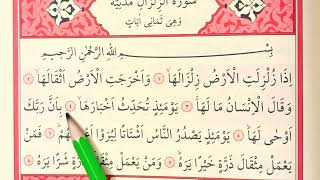 سُورَةُ الزِّلْزَالِ مَدَنِيَّةٌ
وَهِيَ ثَمَانِي اٰيَاتٍ
بِسْمِ اللّٰهِ الرَّحْمٰنِ الرَّحِيمِ
اِذَا زُلْزِلَتِ الْاَرْضُ زِلْزَالَهَاۙ ١ وَاَخْرَجَتِ الْاَرْضُ اَثْقَالَهَاۙ ٢
وَقَالَ الْاِنْسَانُ مَا لَهَاۚ ٣ يَوْمَئِذٍ تُحَدِّثُ اَخْبَارَهَاۙ ٤ بِاَنَّ رَبَّكَ
اَوْحٰى لَهَاۜ ٥ يَوْمَئِذٍ يَصْدُرُ النَّاسُ اَشْتَاتًا لِيُرَوْا ٦ فَمَنْ
يَعْمَلْ مِثْقَالَ ذَرَّةٍ خَيْرًا يَرَهُۜ ٧ وَمَنْ يَعْمَلْ مِثْقَالَ ذَرَّةٍ شَرًّا يَرَهُ